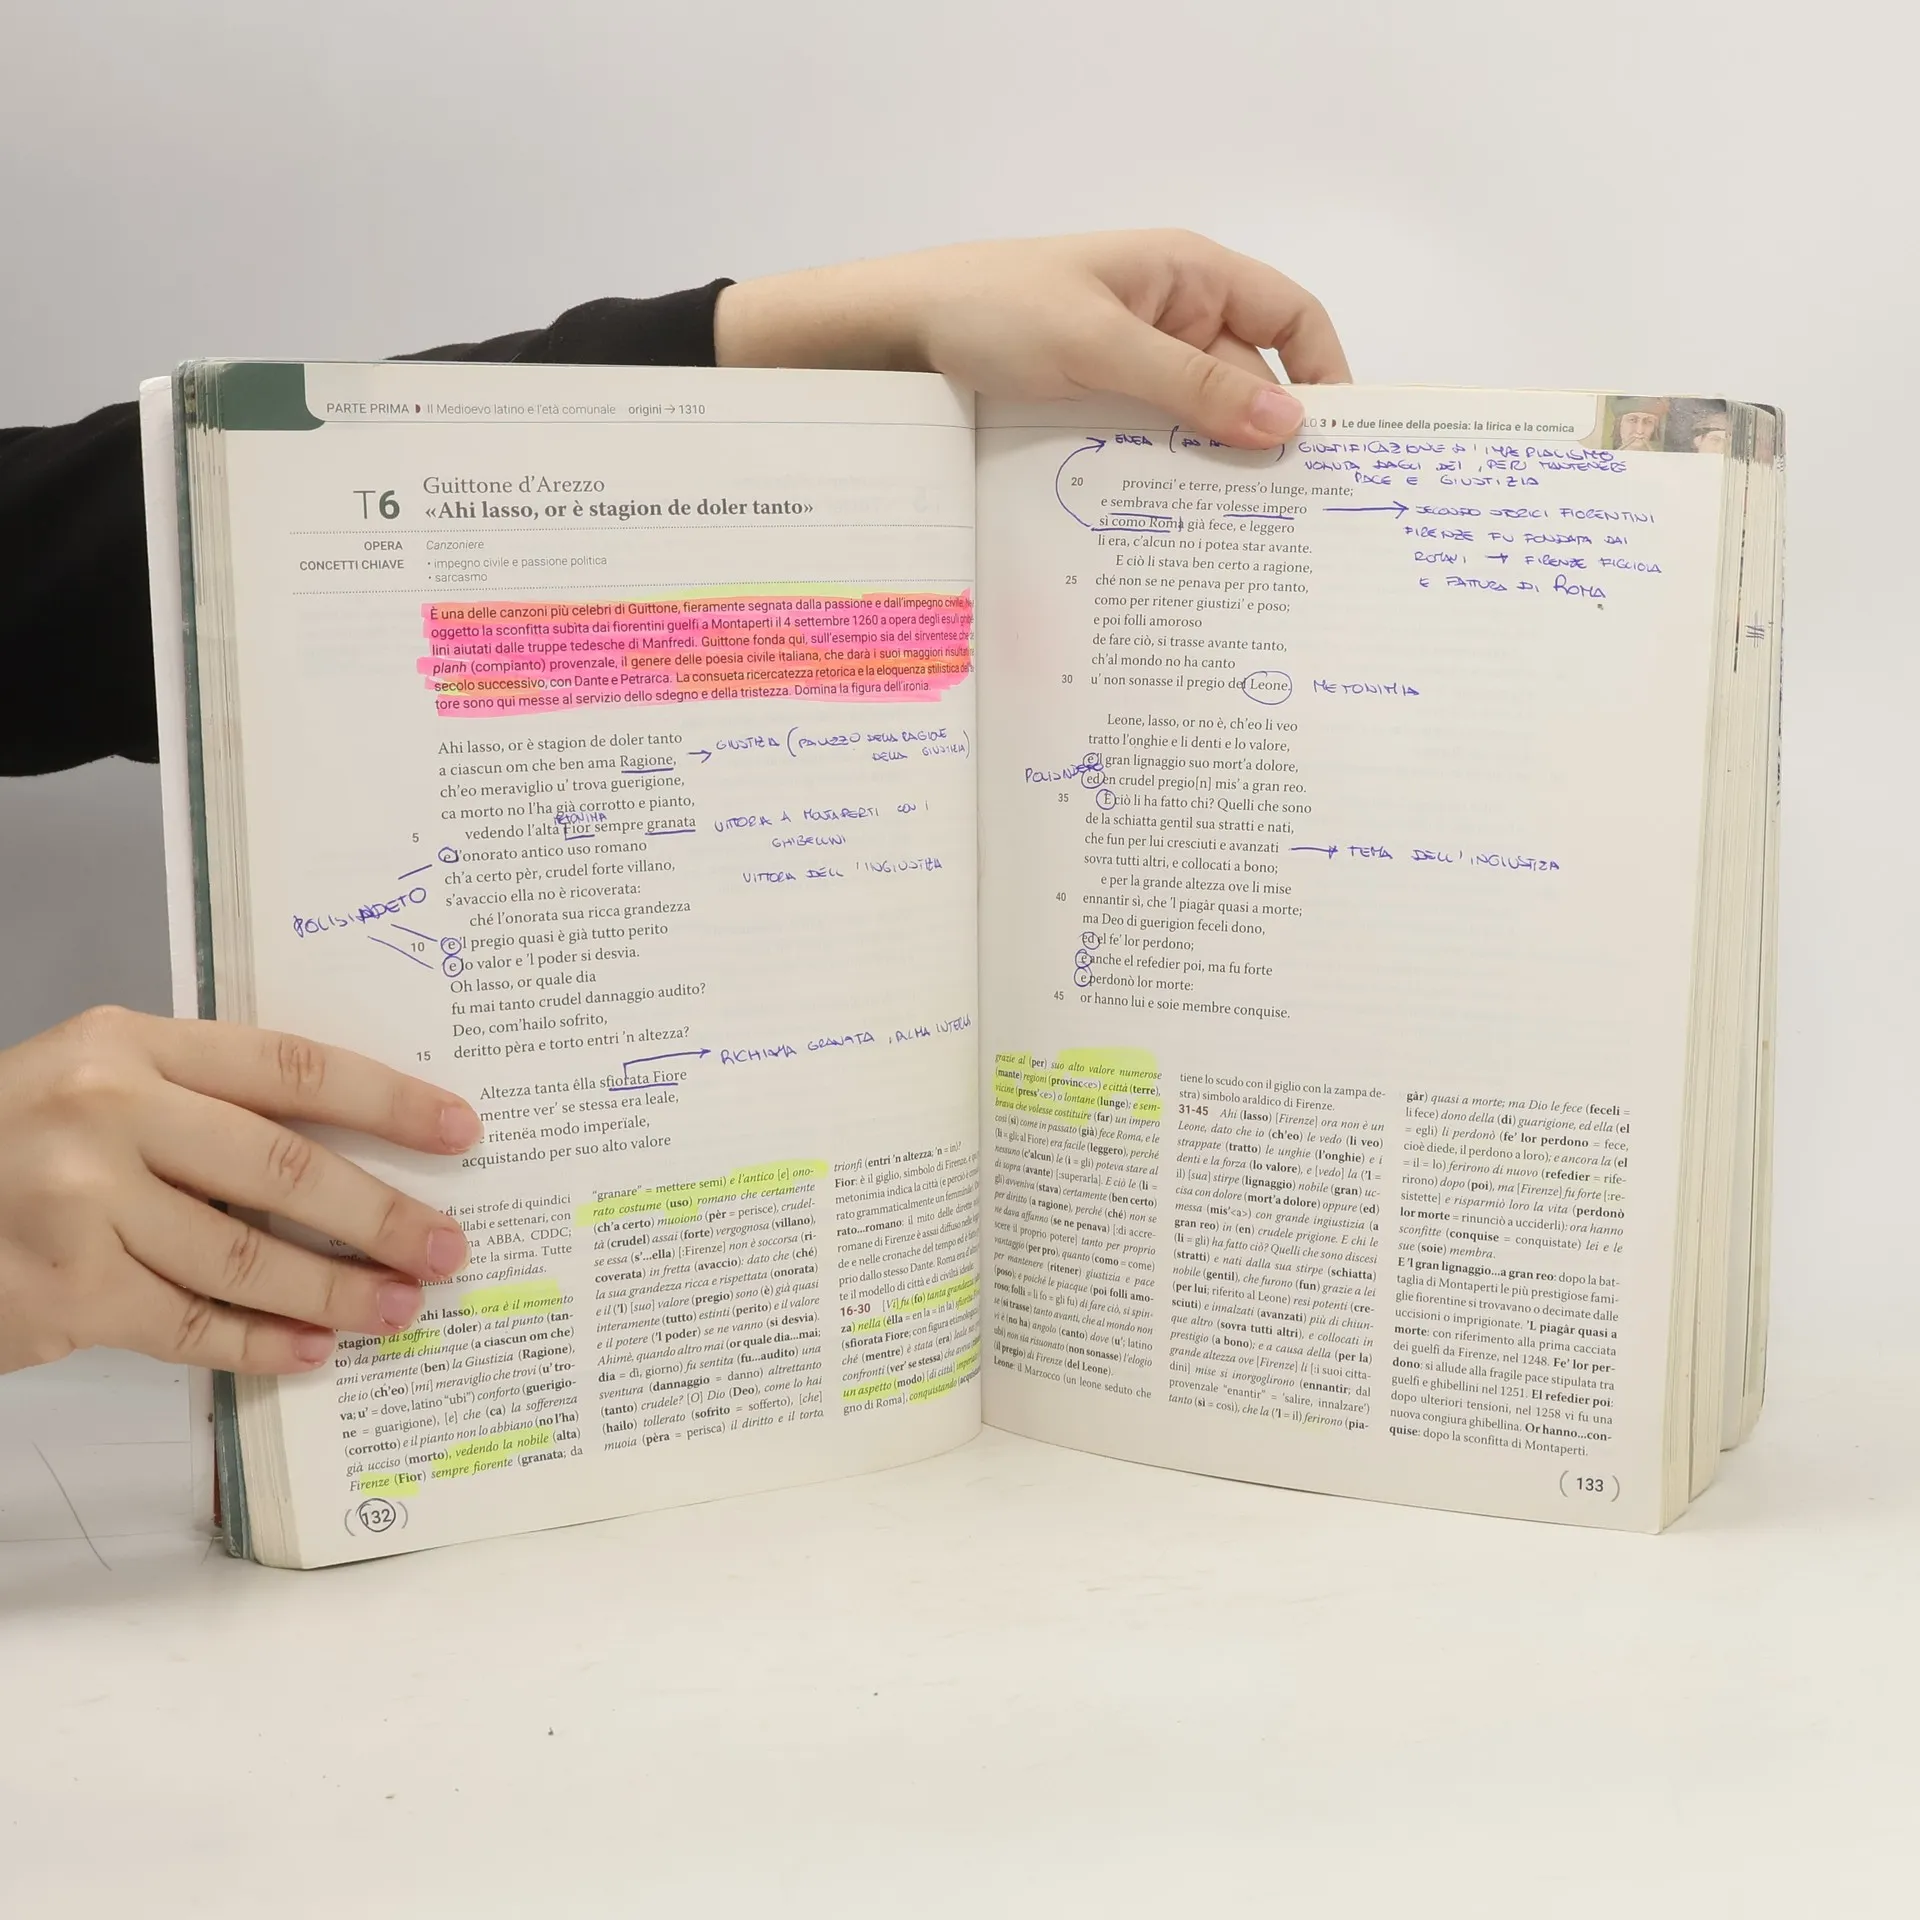 PARTE PRIMA Il Medioevo latino e l'età comunale origini → 1310
T6 Guittone d'Arezzo
«Ahi lasso, or è stagion de doler tanto»
OPERA Canzoniere
CONCETTI CHIAVE • impegno civile e passione politica
• sarcasmo
È una delle canzoni più celebri di Guittone, fieramente segnata dalla passione e dall'impegno civile.
oggetto la sconfitta subita dai fiorentini guelfi a Montaperti il 4 settembre 1260 a opera degli esuli
lini aiutati dalle truppe tedesche di Manfredi. Guittone fonda qui, sull'esempio sia del sirventese che
planh (compianto) provenzale, il genere delle poesia civile italiana, che darà i suoi maggiori risultati
secolo successivo, con Dante e Petrarca. La consueta ricercatezza retorica e la eloquenza stilistica
tore sono qui messe al servizio dello sdegno e della tristezza. Domina la figura dell'ironia.
Ahi lasso, or è stagion de doler tanto
a ciascun om che ben ama Ragione, → GIUSTIZIA (PALAZZO DELLA RAGIONE
DELLA GIUSTIZIA)
ch'eo meraviglio u' trova guerigione,
ca morto no l'ha già corrotto e pianto,
5 vedendo l'alta Fior sempre granata VITTORIA A MONTAPERTI CON I
GHIBELLINI
e l'onorato antico uso romano
ch'a certo pèr, crudel forte villano, VITTORIA DELL'INGIUSTIZIA
s'avaccio ella no è ricoverata:
POLISINDETO
ché l'onorata sua ricca grandezza
10 e 'l pregio quasi è già tutto perito
e lo valor e 'l poder si desvia.
Oh lasso, or quale dia
fu mai tanto crudel dannaggio audito?
Deo, com'hailo sofrito,
15 deritto pèra e torto entri 'n altezza?
RICHIAMA GRANATA, ALMA
Altezza tanta êlla sfiorata Fiore
mentre ver' se stessa era leale,
ritenëa modo imperïale,
acquistando per suo alto valore
di sei strofe di quindici
illabi e settenari, con
ABBA, CDDC;
ete la sirma. Tutte
sono capfinidas.
ahi lasso), ora è il momento
stagion) di soffrire (doler) a tal punto (tan-
to) da parte di chiunque (a ciascun om che)
ami veramente (ben) la Giustizia (Ragione),
che io (ch'eo) [mi] meraviglio che trovi (u' tro-
va; u' = dove, latino "ubi") conforto (guerigio-
ne = guarigione), [e] che (ca) la sofferenza
(corrotto) e il pianto non lo abbiano (no l'ha)
già ucciso (morto), vedendo la nobile (alta)
Firenze (Fior) sempre fiorente (granata; da
"granare" = mettere semi) e l'antico [e] ono-
rato costume (uso) romano che certamente
(ch'a certo) muoiono (pèr = perisce), crudel-
tà (crudel) assai (forte) vergognosa (villano),
se essa (s'...ella) [:Firenze] non è soccorsa (ri-
coverata) in fretta (avaccio): dato che (ché)
la sua grandezza ricca e rispettata (onorata)
e il ('l) [suo] valore (pregio) sono (è) già quasi
interamente (tutto) estinti (perito) e il valore
e il potere ('l poder) se ne vanno (si desvia).
Ahimè, quando altro mai (or quale dia...mai;
dia = dì, giorno) fu sentita (fu...audito) una
sventura (dannaggio = danno) altrettanto
(tanto) crudele? [O] Dio (Deo), come lo hai
(hailo) tollerato (sofrito = sofferto), [che]
muoia (pèra = perisca) il diritto e il torto
trionfi (entri 'n altezza; 'n = in)?
Fior: è il giglio, simbolo di Firenze,
metonimia indica la città (e perciò è
rato grammaticalmente un femminile).
rato...romano: il mito delle dirette
romane di Firenze è assai diffuso nelle
de e nelle cronache del tempo ed è
prio dallo stesso Dante. Roma era
te il modello di città e di civiltà ideale.
16-30 [Vi] fu (fo) tanta grandezza
za) nella (êlla = en la = in la)
(sfiorata Fiore; con figura etimologica
ché (mentre) è stata (era) leale
confronti (ver' se stessa) che aveva
un aspetto (modo) [di città]
gno di Roma], conquistando
(132)
3 Le due linee della poesia: la lirica e la comica
ENEA GIUSTIFICAZIONE
VOLUTA DAGLI DEI, PER MANTENERE
PACE E GIUSTIZIA
20 provinci' e terre, press'o lunge, mante;
e sembrava che far volesse impero → SECONDO STORICI FIORENTINI
sì como Roma già fece, e leggero FIRENZE FU FONDATA DAI
li era, c'alcun no i potea star avante. ROMANI → FIRENZE FIGLIOLA
E FATTURA DI ROMA
E ciò li stava ben certo a ragione,
25 ché non se ne penava per pro tanto,
como per ritener giustizi' e poso;
e poi folli amoroso
de fare ciò, si trasse avante tanto,
ch'al mondo no ha canto
30 u' non sonasse il pregio del Leone. METONIMIA
Leone, lasso, or no è, ch'eo li veo
tratto l'onghie e li denti e lo valore,
e 'l gran lignaggio suo mort'a dolore,
POLISINDETO
ed en crudel pregio[n] mis' a gran reo.
35 E ciò li ha fatto chi? Quelli che sono
de la schiatta gentil sua stratti e nati,
che fun per lui cresciuti e avanzati → TEMA DELL'INGIUSTIZIA
sovra tutti altri, e collocati a bono;
e per la grande altezza ove li mise
40 ennantir sì, che 'l piagâr quasi a morte;
ma Deo di guerigion feceli dono,
ed el fe' lor perdono;
e anche el refedier poi, ma fu forte
e perdonò lor morte:
45 or hanno lui e soie membre conquise.
grazie al (per) suo alto valore numerose
(mante) regioni (province) e città (terre),
vicine (press'<e>) o lontane (lunge); e sem-
brava che volesse costituire (far) un impero
così (sì) come in passato (già) fece Roma, e le
(li = gli; al Fiore) era facile (leggero), perché
nessuno (c'alcun) le (i = gli) poteva stare al
di sopra (avante) [:superarla]. E ciò le (li =
gli) avveniva (stava) certamente (ben certo)
per diritto (a ragione), perché (ché) non se
ne dava affanno (se ne penava) [:di accre-
scere il proprio potere] tanto per proprio
vantaggio (per pro), quanto (como = come)
per mantenere (ritener) giustizia e pace
(poso); e poiché le piacque (poi folli amo-
roso; folli = li fo = gli fu) di fare ciò, si spin-
se (si trasse) tanto avanti, che al mondo non
vi è (no ha) angolo (canto) dove (u'; latino
ubi) non sia risuonato (non sonasse) l'elogio
(il pregio) di Firenze (del Leone).
Leone: il Marzocco (un leone seduto che
tiene lo scudo con il giglio con la zampa de-
stra) simbolo araldico di Firenze.
31-45 Ahi (lasso) [Firenze] ora non è un
Leone, dato che io (ch'eo) le vedo (li veo)
strappate (tratto) le unghie (l'onghie) e i
denti e la forza (lo valore), e [vedo] la ('l =
il) [sua] stirpe (lignaggio) nobile (gran) uc-
cisa con dolore (mort'a dolore) oppure (ed)
messa (mis'<a>) con grande ingiustizia (a
gran reo) in (en) crudele prigione. E chi le
(li = gli) ha fatto ciò? Quelli che sono discesi
(stratti) e nati dalla sua stirpe (schiatta)
nobile (gentil), che furono (fun) grazie a lei
(per lui; riferito al Leone) resi potenti (cre-
sciuti) e innalzati (avanzati) più di chiun-
que altro (sovra tutti altri), e collocati in
prestigio (a bono); e a causa della (per la)
grande altezza ove [Firenze] li [:i suoi citta-
dini] mise si inorgoglirono (ennantir; dal
provenzale "enantir" = 'salire, innalzare')
tanto (sì = così), che la ('l = il) ferirono (pia-
gâr) quasi a morte; ma Dio le fece (feceli =
li fece) dono della (di) guarigione, ed ella (el
= egli) li perdonò (fe' lor perdono = fece,
cioè diede, il perdono a loro); e ancora la (el
= il = lo) ferirono di nuovo (refedier = rife-
rirono) dopo (poi), ma [Firenze] fu forte [:re-
sistette] e risparmiò loro la vita (perdonò
lor morte = rinunciò a ucciderli): ora hanno
sconfitte (conquise = conquistate) lei e le
sue (soie) membra.
E 'l gran lignaggio...a gran reo: dopo la bat-
taglia di Montaperti le più prestigiose fami-
glie fiorentine si trovavano o decimate dalle
uccisioni o imprigionate. 'L piagâr quasi a
morte: con riferimento alla prima cacciata
dei guelfi da Firenze, nel 1248. Fe' lor per-
dono: si allude alla fragile pace stipulata tra
guelfi e ghibellini nel 1251. El refedier poi:
dopo ulteriori tensioni, nel 1258 vi fu una
nuova congiura ghibellina. Or hanno...con-
quise: dopo la sconfitta di Montaperti.
(133)